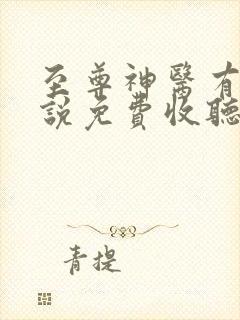 至尊神醫有
說免費收聽
青提